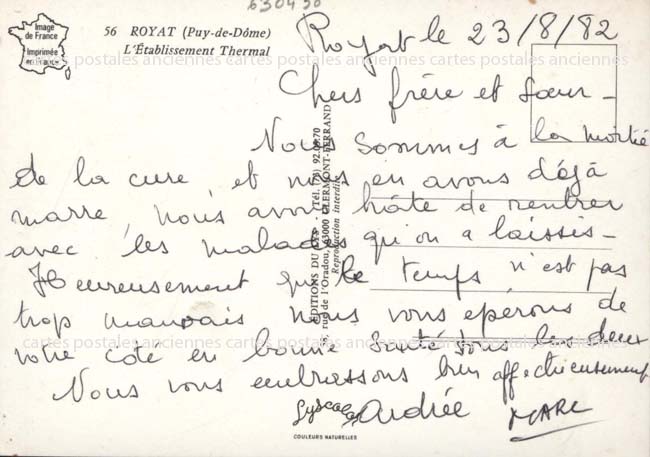 630450
Image
de France
Imprimée
en France
56 ROYAT (Puy-de-Dôme)
L'Établissement Thermal
Royat le 23/8/82
cartes postales anciennes cartes postales anciennes cartes postales anciennes
Chers frère et sœur -
Nous sommes à la moitié
de la cure, et nous en avons déjà
marre, nous avons hâte de rentrer
avec les malades qu'on a laissis -
Heureusement que le temps n'est pas
trop mauvais nous vous epérons de
votre coté en bonne santé tous les deux
cartes postales anciennes cartes postales anciennes cartes postales anciennes
Nous vous embrassons bien affectueusement
Andrée MARC
ÉDITIONS DU LYS - (Tél. (73) 92.09.70
58, rue de l'Oradou, 63000 CLERMONT-FERRAND
Reproduction interdite
COULEURS NATURELLES